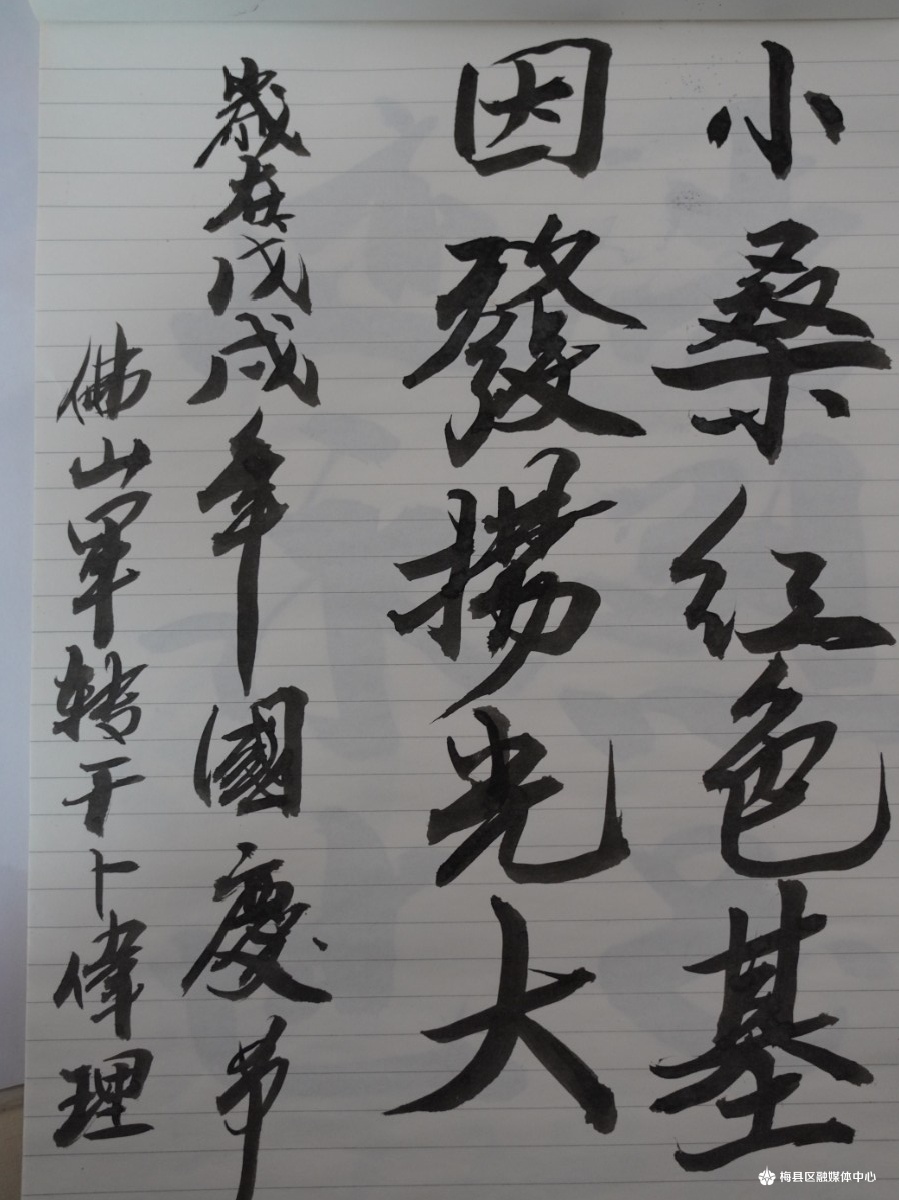 小桑红色基
因發揚光大
歲在戊戌年國慶节
佛山军转干卜偉理
梅县区融媒体中心